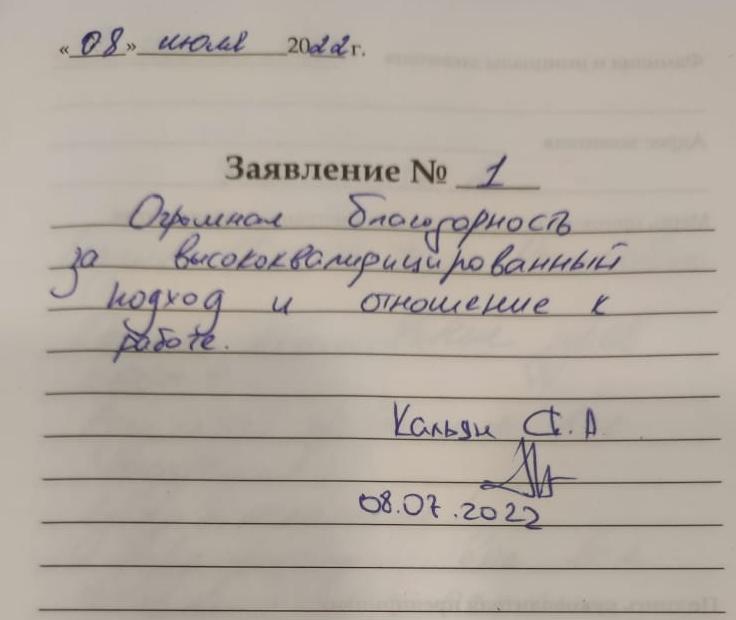 «08» июля 2022 г.
Заявление № 1
Огромная благодорность
за высококвалифицированный
подход и отношение к
работе.
Кальян
08.07.2022